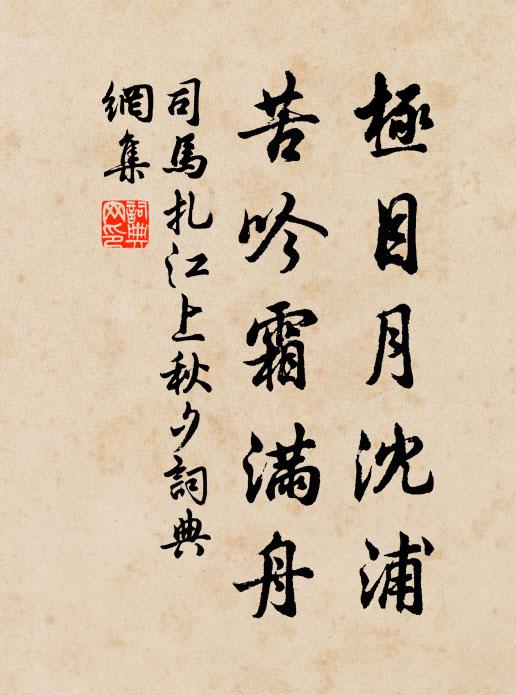 極目月沈浦
苦吟霜滿舟
司馬扎江上秋夕詞典
網集
詞典
网印